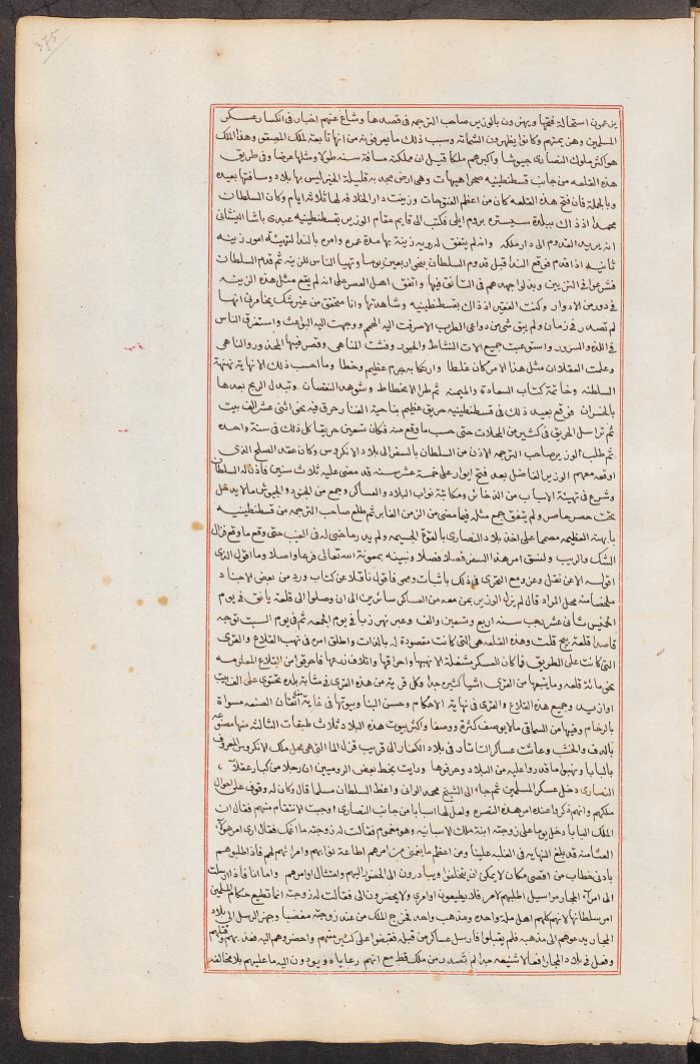 375
يزعمون استحالة فتحها ويهزون بالوزير صاحب الترجمة فى قصدها وشاع عنهم اخبار فى انكسار عسكر
المسلمين وهن بمنهم وكانوا يظهرون الشماته وسبب ذلك ما يعرفونه من انها تابعة لملك وهذا الملك
هو اكثر ملوك النصارى جيوشا واكبرهم ملكا قيل ان مملكته مسافة سنه طولا ومثلها عرضا وفى طريق
هذه القلعه من جانب قسطنطينيه صحرا هيهات وهى ارض مجدبه قليلة الخير ليس بها بلاد ومسافتها بعيده
وبالجملة فان فتح هذه القلعه كان من اعظم الفتوحات وزينت دار الخلافه لها ثلاثة ايام وكان السلطان
محمد اذ ذاك ببلدة سيستره بروم ايلى فكتب الى قايم مقام الوزير بقسطنطينيه عبدى باشا النشانى
انه يريد القدوم الى دار ملكه وانه لم يتفق له روية زينة بها مدة عمره وامره بالندا لتهيئة امور زينه
ثانيه اذا قدم فوقع الندا قبل قدوم السلطان بنحو اربعين يوما وتهيا الناس للزينه ثم قدم السلطان
فشرعوا فى التزيين وبذلوا جهدهم فى التانق فيها واتفق اهل العصر على انه لم يقع مثل هذه الزينه
فى دور من الادوار وكنت الفقير اذ ذاك بقسطنطينيه وشاهدتها وانا متحقق من غير شك يخامرنى انها
لم تصدر فى زمان ولم يبق شى من دواعى الطرب الا صرفت اليه الهمم ووجهت اليه البواعث واستغرق الناس
فى اللذه والسرور واستوعبت جميع الات النشاط والحبور وفشت المناهى وقصر فيها المحذور والناهى
وعلمت العقلا ان مثل هذا الامر كان غلطا وارتكابه جرم عظيم وخطا وما احسب ذلك الا نهاية نهنهة
السلطنه وخاتمة كتاب السعادة والميمنه ثم طرا الانحطاط وشوهد النقصان وتبدل الربح بعدها
بالخسران فوقع بعيد ذلك فى قسطنطينيه حريق عظيم بناحية الفنار حرق فيه نحو اثنى عشر الف بيت
ثم تراسل الحريق فى كثير من المحلات حتى حسب ما وقع منه فكان تسعين حريقا كل ذلك فى سنة واحده
ثم طلب الوزير صاحب الترجمه الاذن من السلطان بالسفر الى بلاد الانكروس وكان عقد الصلح الذى
اوقعه معهم الوزير الفاضل بعد فتح ايوار على خمسة عشر سنه قد مضى عليه ثلاث سنين فاذن له السلطان
وشرع فى تهيئة الاسباب من الذخائر ومكاتبة نواب البلاد والعساكر وجمع من الجنود والجيوش ما لا يدخل
تحت حصر حاصر ولم يتفق جمع مثله فيما مضى من الزمن الغابر ثم طلع صاحب الترجمه من قسطنطينيه
بابهته العظيمه مصمما على اخذ بلاد النصارى بالقوة الجسيمه ولم يدر ما خبى له فى الغيب حتى وقع ما وقع فزال
الشك والريب ولنسق امر هذا السفر فصلا فصلا ونبينه بمعونة الله تعالى فرعا واصلا وما اقول الذى
اقوله الا عن نقل وعزو مع التحرى فى ذلك باثبات ومحو فاقول ناقلا عن كتاب ورد من بعض الاجناد
ملخصا منه محل المراد قال لم يزل الوزير بمن معه من العساكر سائرين الى ان وصلوا الى قلعة يانق فى يوم
الخميس ثانى عشر رجب سنه اربع وتسعين والف وعبر نهر زبا فى يوم الجمعه ثم فى يوم السبت توجه
قاصدا قلعة بج قلت وهذه القلعه هى التى كانت مقصودة له بالذات واطلق امره فى نهب القلاع والقرى
التى كانت على الطريق فما كان العسكر مشغلة الا نهبها واحراقها واتلاف زرعها فاحرقوا من القلاع المعلومه
نحو مائة قلعه وما يتبعها من القرى اشيا كثيره جدا وكل قرية من هذه القرى فى مثابة بلده تحتوى على الف بيت
او ازيد وجميع هذه القلاع والقرى فى نهاية الاحكام وحسن البنا وبيوتها فى غاية اتقان الصنعه مسواة
بالرخام وفيها من السماقى ما لا يوصف كثرة ووصفا واكثر بيوت هذه البلاد ثلاث طبقات الثالثه منها مصنوعه
بالدف والخشب وعاثت عساكر التاتار فى بلاد الكفار الى قريب قزل الما التى هى محل ملك الانكروس المعروف
بالبابا ونهبوا ما قدروا عليه من البلاد وحرقوها ورايت بخط بعض الروميين ان رجلا من كبار عقلآ
النصارى دخل عسكر المسلمين ثم جاء الى الشيخ محمد الوانى واعظ السلطان مسلما قال وكان له وقوف على احوال
ملكهم وانهم ذكروا عنده امر هذه النصره ولعل لها اسبابا من جانب النصارى اوجبت الانتقام منهم فقال ان
الملك البابا دخل يوما على زوجته ابنة ملك الاسبانيه وهو مغموم فقالت له زوجته ما اغمك فقال ارى امر هؤلآ
العثامنه قد بلغ النهايه فى الغلبه علينا ومن اعظم ما يغمنى من امرهم اطاعة نوابهم وامرائهم لهم فاذا طلبوهم
بادنى خطاب من اقصى مكان لا يمكن ان يتخلفوا ويبادرون الى الحضور اليهم وامتثال اوامرهم واما انا فاذا ارسلت
الى امرآء المجار مراسيل اطلبهم لامر فلا يطيعون اوامرى ولا يحضرون الى فقالت له زوجته انما تطيع حكام المسلمين
امر سلطانها لانهم كلهم اهل ملة واحده ومذهب واحد فخرج الملك من عند زوجته مغضبا وجهز الرسل الى بلاد
المجار يدعوهم الى مذهبه فلم يقبلوا فارسل عساكر من قبله فقبضوا على كثير منهم واحضروهم اليه فعذبهم وقتلهم
وفعل فى بلاد المجار افعالا شنيعه جدا لم تصدر من ملك قط مع انهم رعاياه ويودون اليه ما عليهم بلا مخالفه